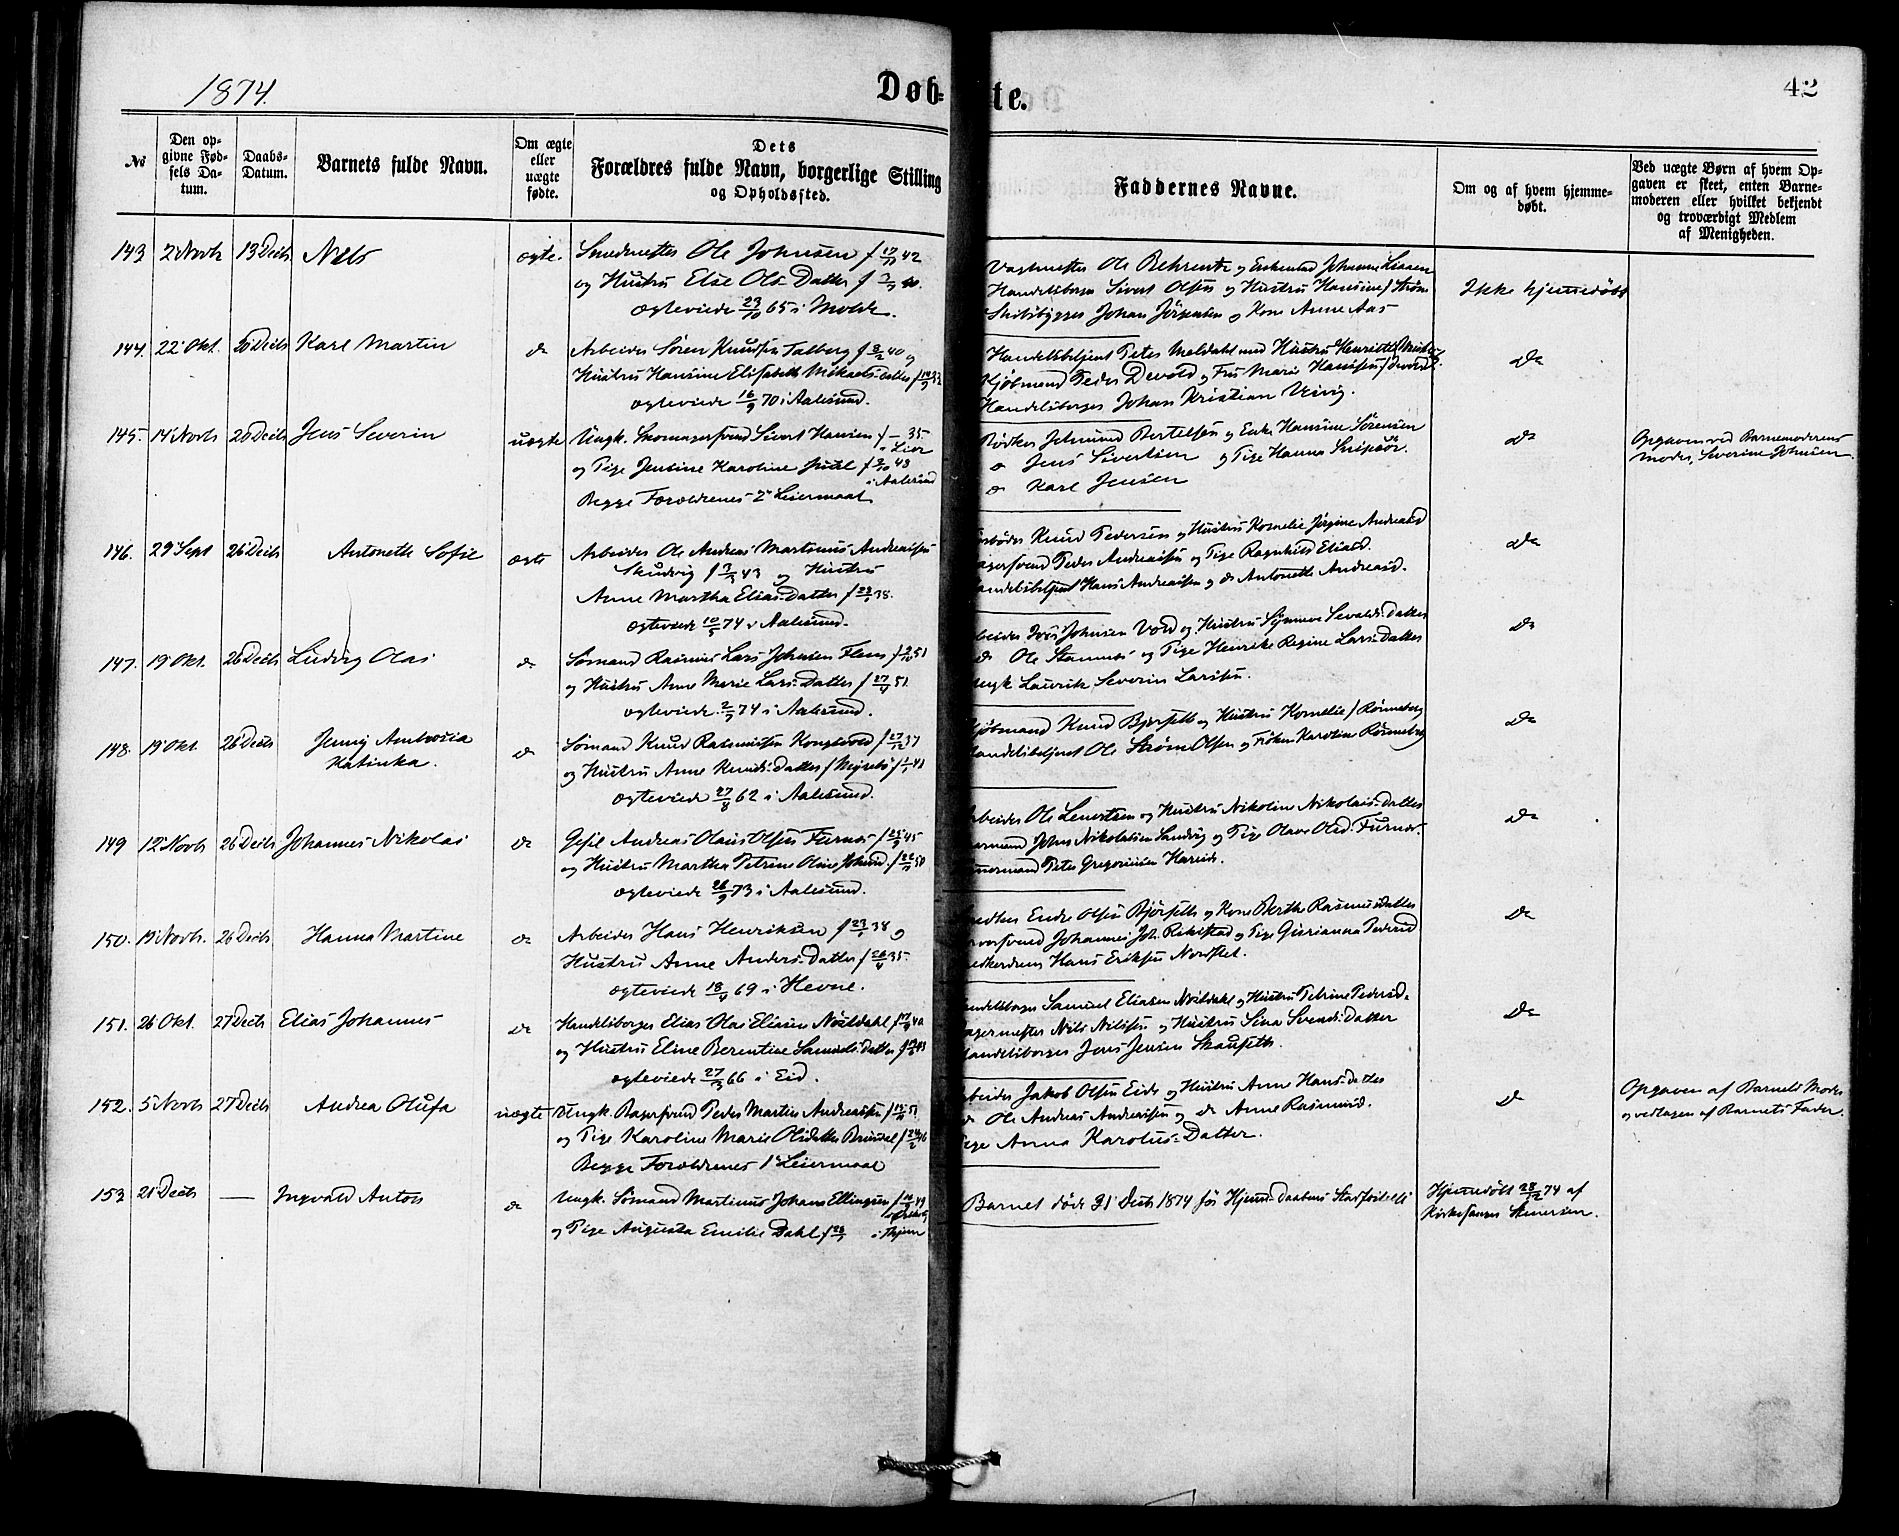 1874.
Døb-
te.
42
No
Den op-
givne Fød-
sels Da-
tum.
Daabs-
Datum.
Barnets fulde Navn.
Om ægte
eller
uægte
fødte.
Dets
Forældres fulde Navn, borgerlige Stilling
og Opholdssted.
Faddernes Navne.
Om og af hvem hjemme-
døbt.
Ved uægte Børn af hvem Op-
gaven er skeet, enten Barne-
moderen eller hvilket bekjendt
og troværdigt Medlem
af Menigheden.
143 2 Novb 13 Decb Nels ægte. Smedmester Ole Johnsen f 42
og Hustru Else Ols Datter f
ægteviede 23/10 65 i Molde.
Vagtmester Ole Behrentz og Enkemad Johanne
Handelsborger Sivert Olsen og Hustru Hansine f Strøm
Skibsbygger Johan Jörgensen og Kone Anne Aas
Ikke hjemmedøbt
144. 22 Okt. 20 Decb Karl Martin do Arbeider Sören Knudsen Talberg f 40 og
Hustru Hansine Elisabeth Mikaels-Datter f
ægteviede 16/9 70 i Aalesund.
Handelsbetjent Peter Moldahl med Hustru Henriette
Kjøbmand Peder Devold og Fru Marie Hanssen f Devold
Handelsborger Johan Kristian
do
145. 14 Novb 20 Decb Jens Severin uægte Ungk. Skomagersvend Sivert Hansen f — 35.
og Pige Jensine Karoline Juhl f 48
i Aalesund
Begge Forældrenes 2' Leiermaal
Bødker Johnund Bertelsen og Enke Hansine Sörensen
do Jens Sivertsen og Pige Hanna
do Karl Jensen
do
Opgaven ved Barnemoderens
Moder, Severine Johnsen.
146. 29 Sept 26 Decb Antonette Sofie ægte Arbeider Ole Andreas Martinus Andreassen
f 43 og Hustru
Anne Martha Elias-Datter f 38.
ægteviede 10/5 74 i Aalesund.
Knud Pedersen og Hustru Kornelie Jörgine Andreasd
Peder Andreassen og Pige Ragnhild Eliasd.
Handelsbetjent Hans Andreassen og do Antonette Andreasd.
do
147. 19 Okt. 26 Decb Ludvig Olai do Sömand Rasmus Lars Johnsen Flem f 51
og Hustru Anne Marie Lars-Datter f 27/4 51.
ægteviede 74 i Aalesund.
Arbeider Iver Johnsen Vold og Hustru Synneve Sevalds-Datter
do Ole Stamnes og Pige Henrike Regine Lars-Datter
Ungk Laurits Severin Larssen.
do
148. 19 Okt 26 Decb Jenny Ambrosia
Katinka.
do Sömand Knud Rasmussen Kongsvold f 37
og Hustru Anne Knuds-Datter f 41
ægteviede 27/8 62 i Aalesund.
Kjøbmand Knud Bjørseth og Hustru Kornelie f Rönneberg
Handelsbetjent Ole Ström Olsen og Frøken Karoline Rönneberg
do
149 12 Novb 26 Decb Johannes Nikolai do Gesel Andreas Olaus Olsen Furnes f 45
og Hustru Martha Petrine Oline Johnsd. f 22/11 50
ægteviede 26/9 73 i Aalesund.
Arbeider Ole Lenertsen og Hustru Nikoline Nikolais-Datter
Johns Nikolaisen Sandvig og Pige Olave Olsd. Furnes.
Peter Gregoriusen Hareide.
do
150. 19 Novb. 26 Decb Hanna Martine do Arbeider Hans Henriksen f 38 og
Hustru Anne Anders-Datter f 26/4 35.
ægteviede 18/4 69 i Hevne.
Endre Olsen Bjørseth og Kone Berthe Rasmusdatter
Johannes Joh. og Pige Gurianna Pedersd
Hans Eriksen
do
151. 26 Okt. 27 Decb Elias Johannes do Handelsborger Elias Olai Eliasen Nösdahl f 40
og Hustru Eline Berentine Samuels-Datter f 43
ægteviede 27/3 66 i Eid.
Handelsborger Samuel Eliasen Nosdahl og Hustru Petrine Pedersd.
Bagermester Nils Nilssen og Hustru Sina Svends-Datter
Handelsborger Jens Jensen Skauseth.
do
152. 5 Novb 27 Decb Andrea Olufa uægte Ungk. Bagersvend Peder Martin Andreassen f 51
og Pige Karoline Marie Olsdatter f 24/2 46
Begge Forældrenes 1' Leiermaal
Arbeider Jakob Olsen Eide og Hustru Anne Hans-datter
do Ole Andreas Andreassen og do Anne Rasmusd.
Pige Anna Karolus-Datter.
do
Opgaven af Barnets Moder
og vedtagen af Barnets Fader.
153 21 Decb — Ingvald Anton do Ungk. Sömand Martinus Johans Ellingsen f 49
og Pige Augusta Emilie Dahl f i Thjem
Barnet døde 31 Decb 1874 før Hjemme-Daabens Stadfæstelse
Hjemmedøbt 28/12 74 af
Kirkesanger Steinersen.